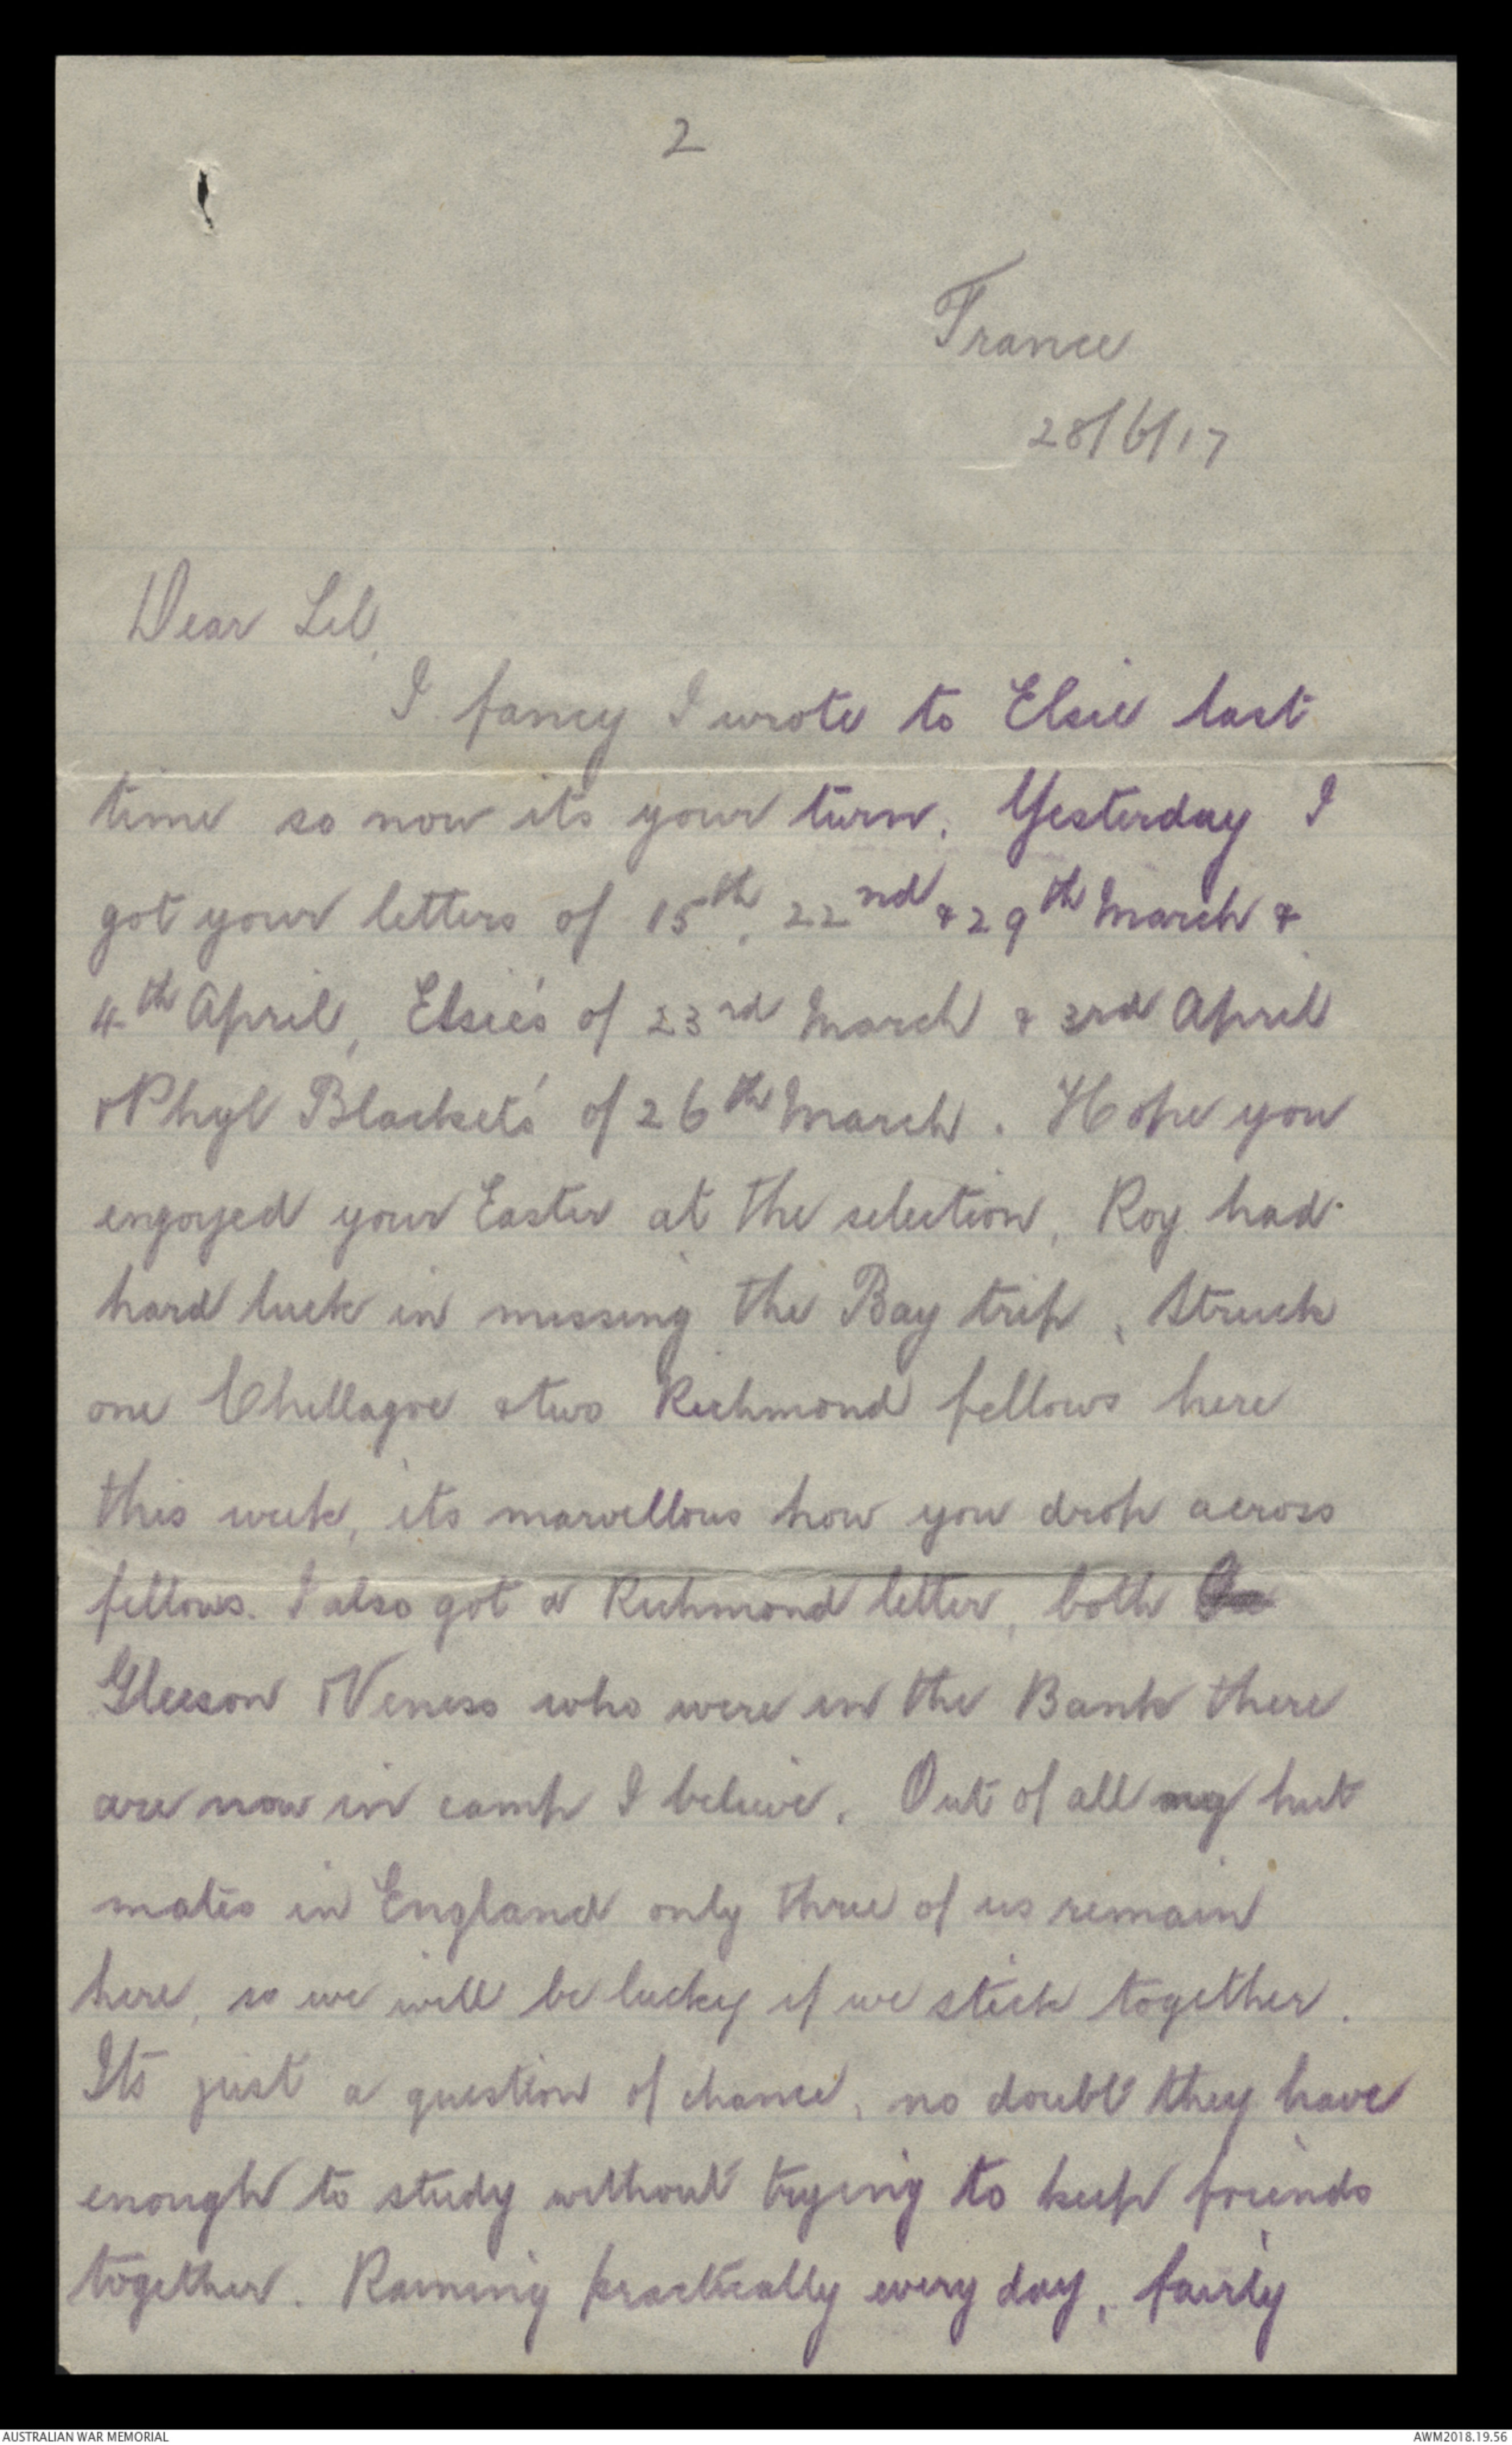 2
France
28/6/17
Dear Lil,
I fancy I wrote to Elsie last
time so now its your turn. Yesterday I
got your letters of 15th, 22nd & 29th March &
4th April, Elsie's of 23rd March & 3rd April
& Phyl Blacket's of 26th March. Hope you
engoyed your Easter at the selection, Roy had
hard luck in missing the Bay trip, Struck
one Chillagoe & two Richmond fellows here
this week, its marvellous how you drop across
fellows. I also got a Richmond letter, both
Gleeson & Veness who were in the Bank there
are now in camp I believe. Out of all my hut
mates in England only three of us remain
here, so we will be lucky if we stick together.
Its just a question of chance, no doubt they have
enough to study without trying to keep friends
together. Raining practically every day, fairly
AUSTRALIAN WAR MEMORIAL
AWM2018.19.56